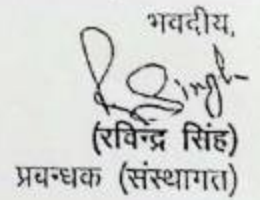 भवदीय,
R Singh
(रविन्द्र सिंह)
प्रबन्धक (संस्थागत)